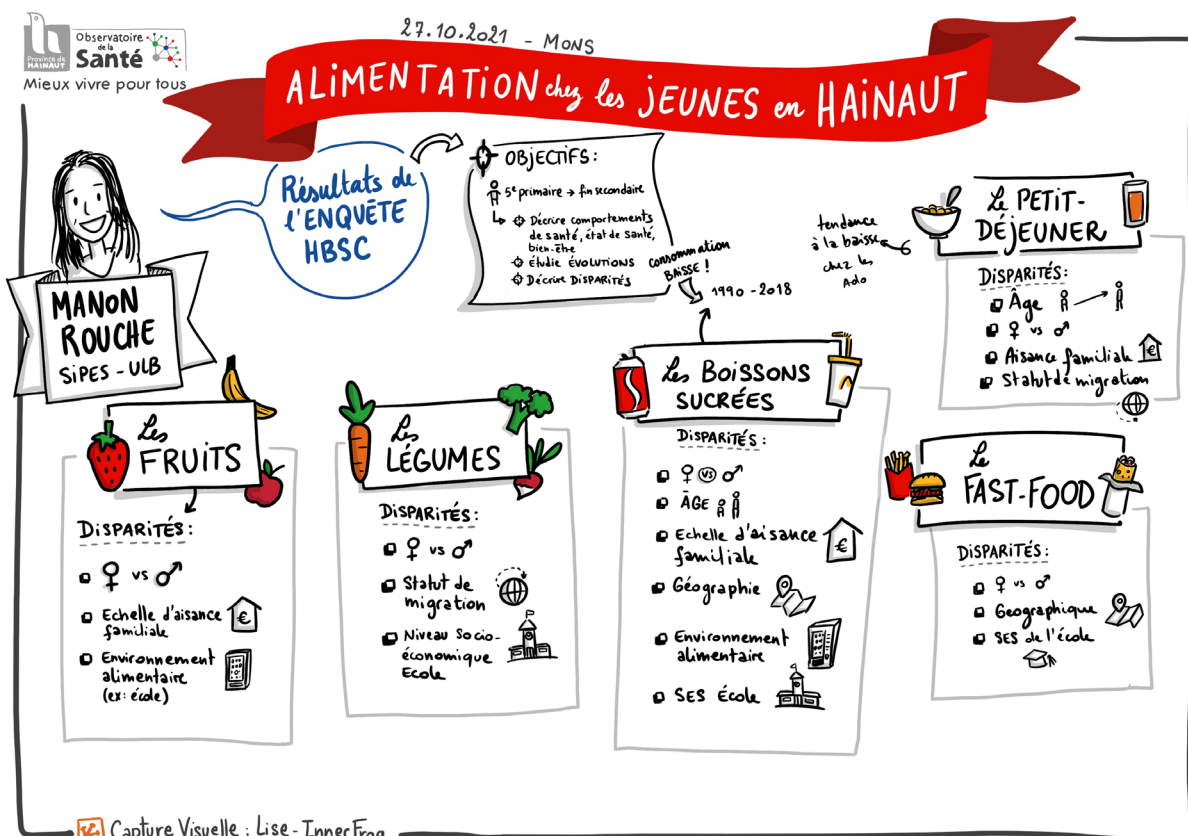 Province de
HAINAUT
Observatoire
de la
Santé
Mieux vivre pour tous
27.10.2021 - MONS
ALIMENTATION chez les JEUNES en HAINAUT
Résultats de
l'ENQUÊTE
HBSC
OBJECTIFS :
5e primaire → fin secondaire
Décrire comportements
de santé, état de santé,
bien-être
étudie ÉVOLUTIONS
Décrire DISPARITÉS
MANON
ROUCHE
SIPES - ULB
consommation
BAISSE !
1990 - 2018
tendance
à la baisse
chez les
Ado
Le PETIT-
DÉJEUNER
DISPARITÉS :
Âge
♀ vs ♂
Aisance familiale
€
Statut de migration
Les
FRUITS
DISPARITÉS :
♀ vs ♂
Echelle d'aisance
familiale
€
Environnement
alimentaire
(ex: école)
Les
LÉGUMES
DISPARITÉS :
♀ vs ♂
Statut de
migration
Niveau Socio-
économique
Ecole
Les BOISSONS
SUCRÉES
DISPARITÉS :
♀ vs ♂
ÂGE
Echelle d'aisance
familiale
€
Géographie
Environnement
alimentaire
SES École
Le
FAST-FOOD
DISPARITÉS :
♀ vs ♂
Geographique
SES de l'école
Capture Visuelle : Lise - InnerFrog